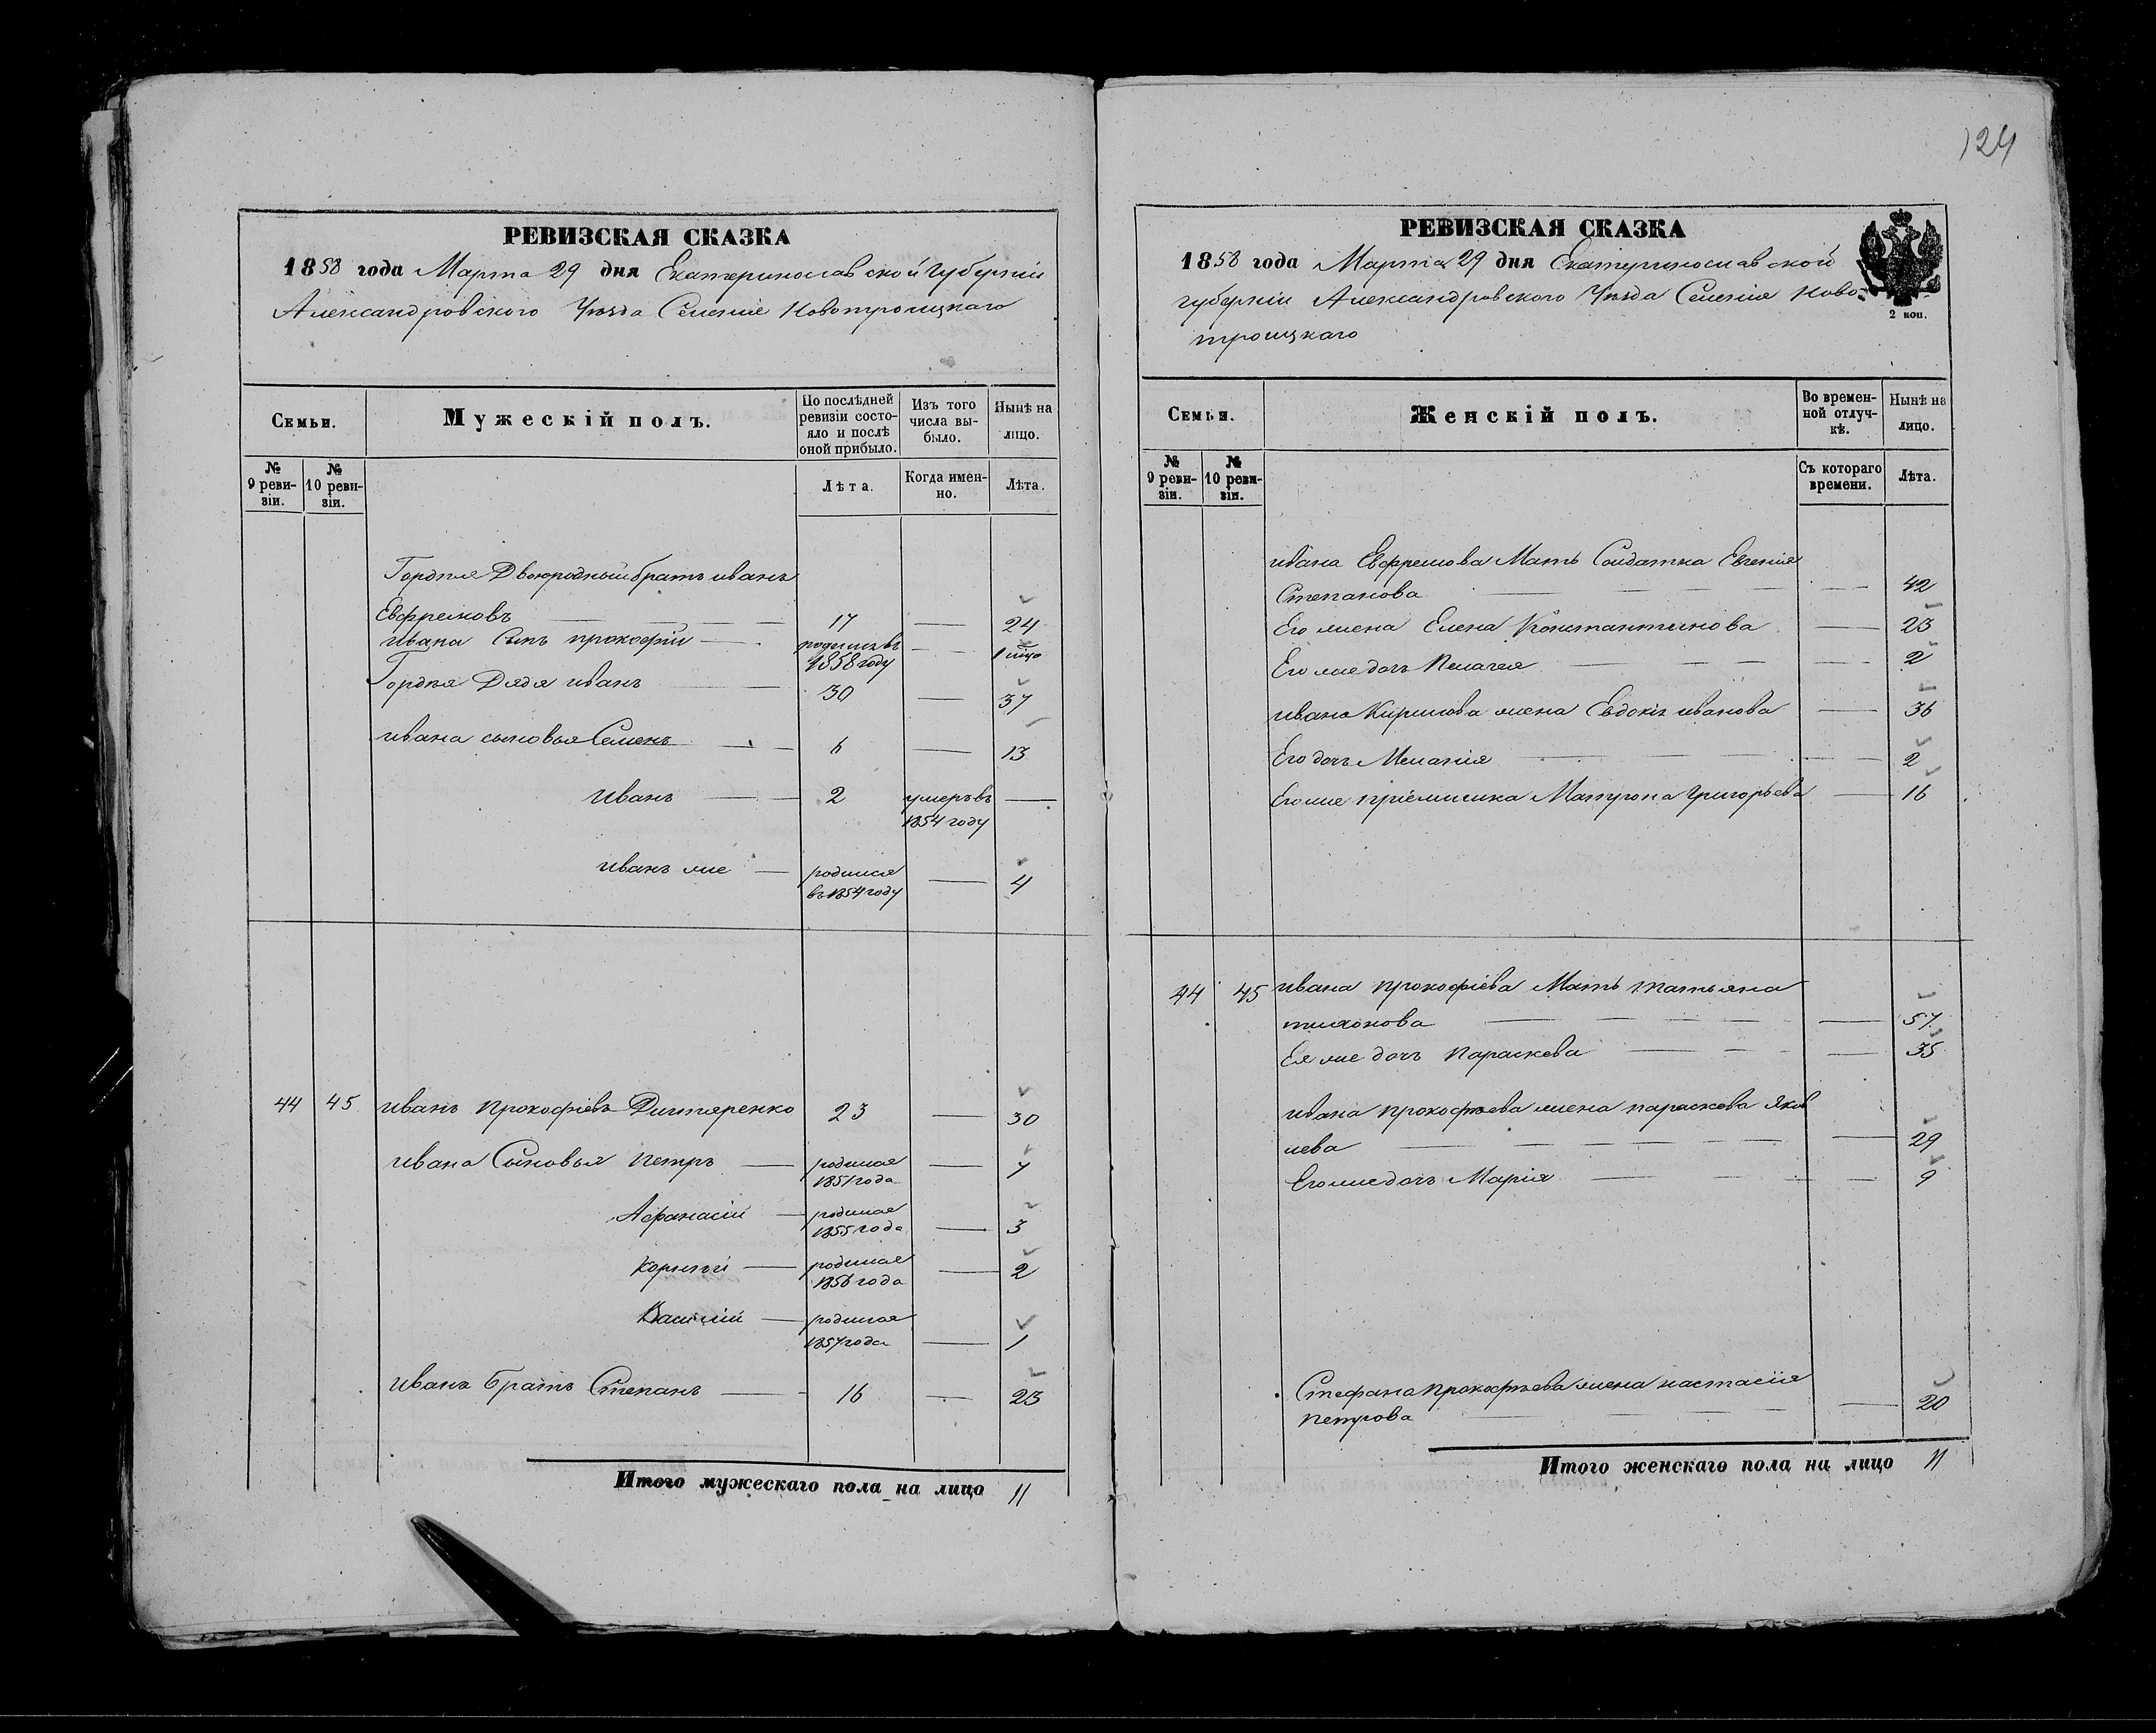 124
РЕВИЗСКАЯ СКАЗКА
1858 года Марта 29 дня Екатеринославской Губерніи
Александровского Уѣзда Селенія Новотроицкаго
Семьи.
Мужескій полъ.
По послѣдней ревизіи состояло и послѣ оной прибыло.
Изъ того числа выбыло.
Нынѣ на лицо.
№ 9 ревизіи.
№ 10 ревизіи.
Лѣта.
Когда именно.
Лѣта.
Гордѣя Двоюродный братъ иванъ
Евфремовъ 17 — 24
ивана Сынъ прокофій — родился въ 1858 году —
Гордѣя Дядя иванъ 30 — 37
ивана сыновья Семенъ 6 — 13
иванъ 2 умеръ въ 1854 году —
иванъ же — родился въ 1854 году — 4
44 45 иванъ Прокофіевъ 23 — 30
ивана Сыновья петръ — родился 1851 года — 7
Афанасій — родился 1855 года — 3
Корнѣй — родился 1856 года — 2
Василій — родился 1857 года — 1
ивана братъ Степанъ 16 — 23
Итого мужескаго пола на лицо 11
РЕВИЗСКАЯ СКАЗКА
1858 года Марта 29 дня Екатеринославской
губерніи Александровского Уѣзда Селенія Ново-
троицкаго
2 коп.
Семьи.
Женскій полъ.
Во временной отлучкѣ.
Нынѣ на лицо.
№ 9 ревизіи.
№ 10 ревизіи.
Съ котораго времени.
Лѣта.
ивана Евфремова Мать Солдатка Евгенія
Степанова — 42
Его жена Елена Константинова — 23
Его же дочь Пелагея — 2
ивана Кирилова жена Евдокія иванова — 36
Его дочь Меланія — 2
Его же пріемшика Матрона Григорьева — 16
44 45 ивана прокофіева Мать татьяна
тихонова — 57
Ея же дочь Параскева — 35
ивана прокофьева жена параскева Яков
лева — 29
Его же дочь Марія — 9
Стефана прокофьева жена настасія
петрова — 20
Итого женскаго пола на лицо 11